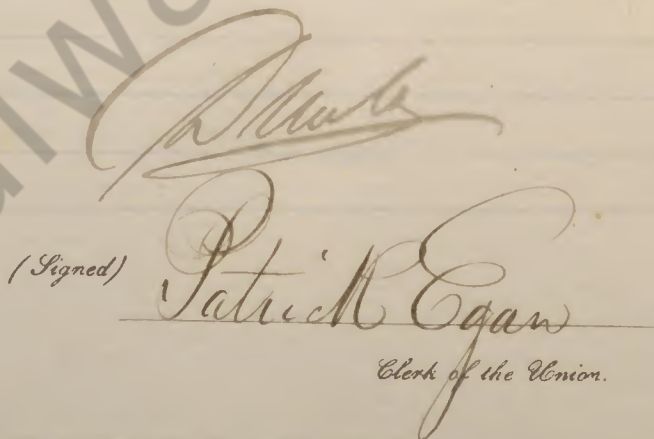 (Signed) Patrick Egan
Clerk of the Union.